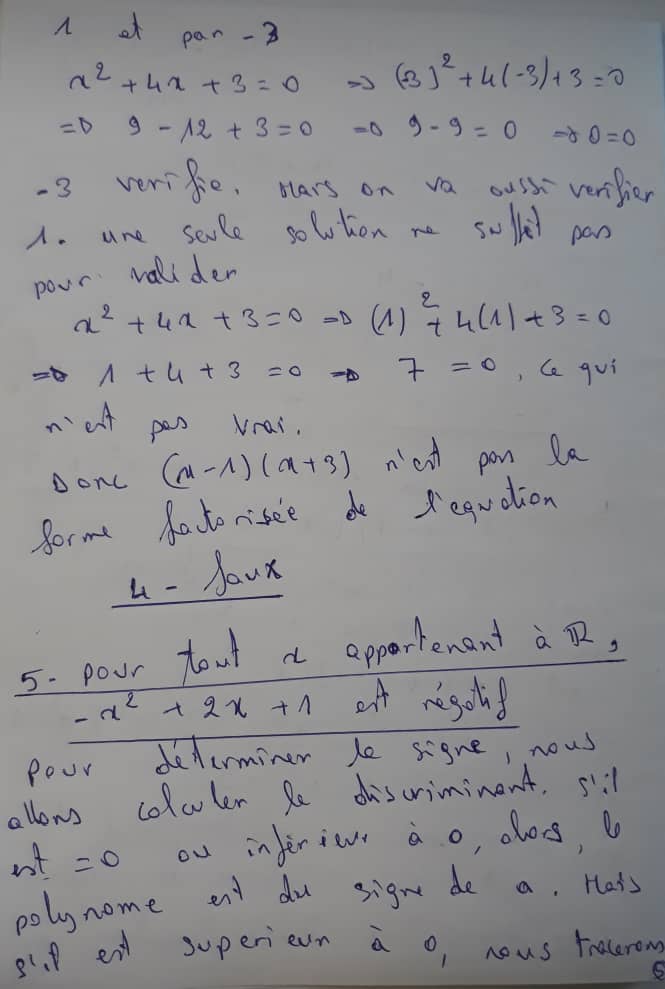 1 et par -3
x² + 4x + 3 = 0 => (-3)² + 4(-3) + 3 = 0
=> 9 - 12 + 3 = 0 => 9 - 9 = 0 => 0 = 0
-3 verifie. Mais on va aussi verifier
1. une seule solution ne suffit pas
pour valider
x² + 4x + 3 = 0 => (1)² + 4(1) + 3 = 0
=> 1 + 4 + 3 = 0 => 7 = 0, ce qui
n'est pas vrai.
Donc (x-1)(x+3) n'est pas la
forme factorisée de l'equation
4 - faux
5- pour tout x appartenant à ℝ,
-x² + 2x + 1 est négatif
pour déterminer le signe, nous
allons calculer le discriminant. s'il
est = 0 ou inférieur à 0, alors, le
polynome est du signe de a. Mais
s'il est superieur à 0, nous tracerons